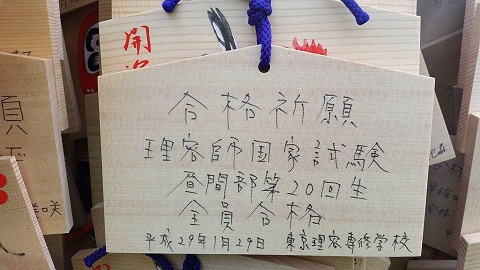 合格祈願
理容師国家試験
昼間部第20回生
全員合格
平成29年1月29日 東京理容専修学校
開運